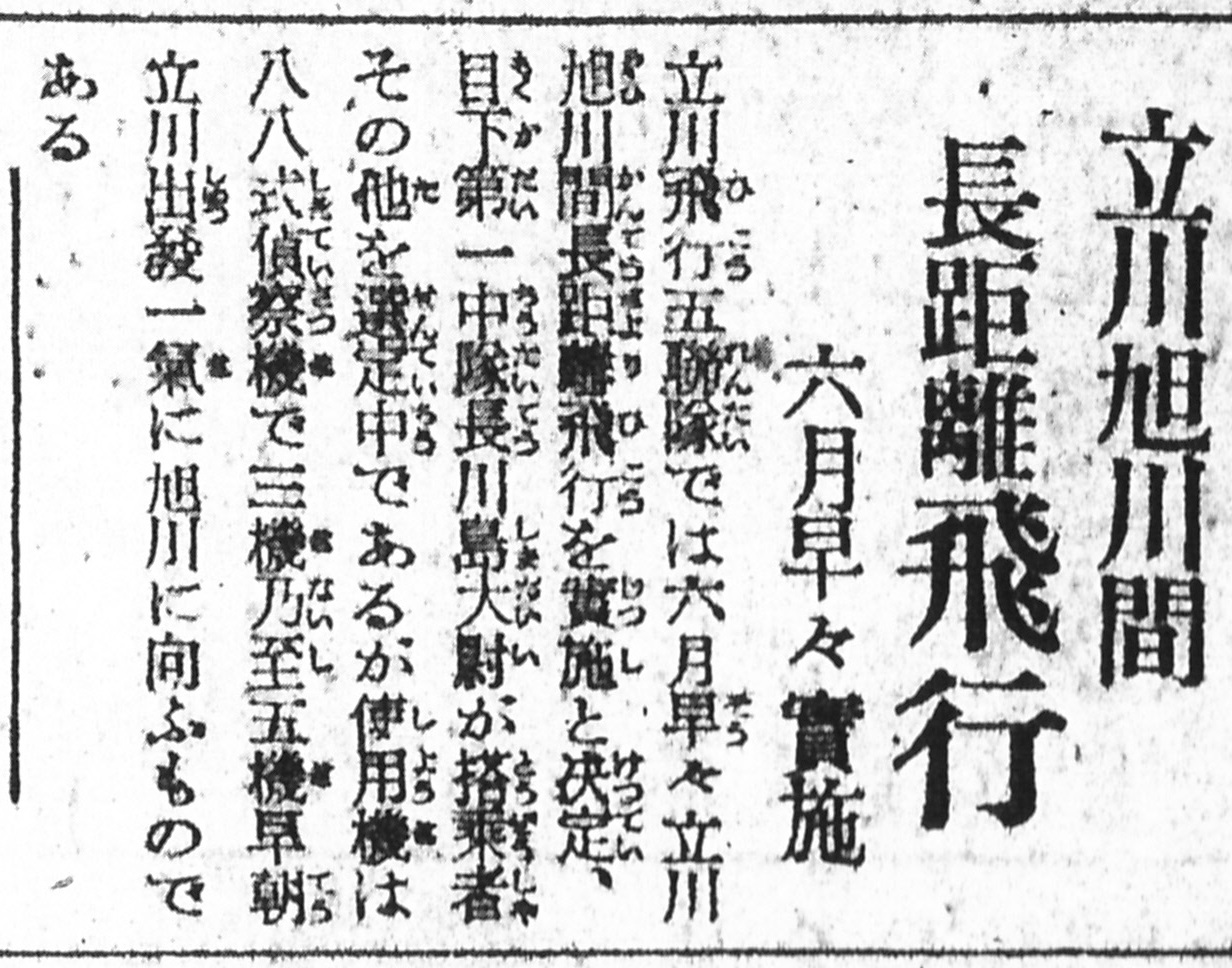 立川旭川間
長距離飛行
六月早々實施
立川飛行五聯隊では六月早々立川
旭川間長距離飛行を實施と决定、
目下第一中隊長川島大尉が搭乘者
その他を選定中であるが使用機は
八八式偵察機で三機乃至五機早朝
立川出發一氣に旭川に向ふもので
ある